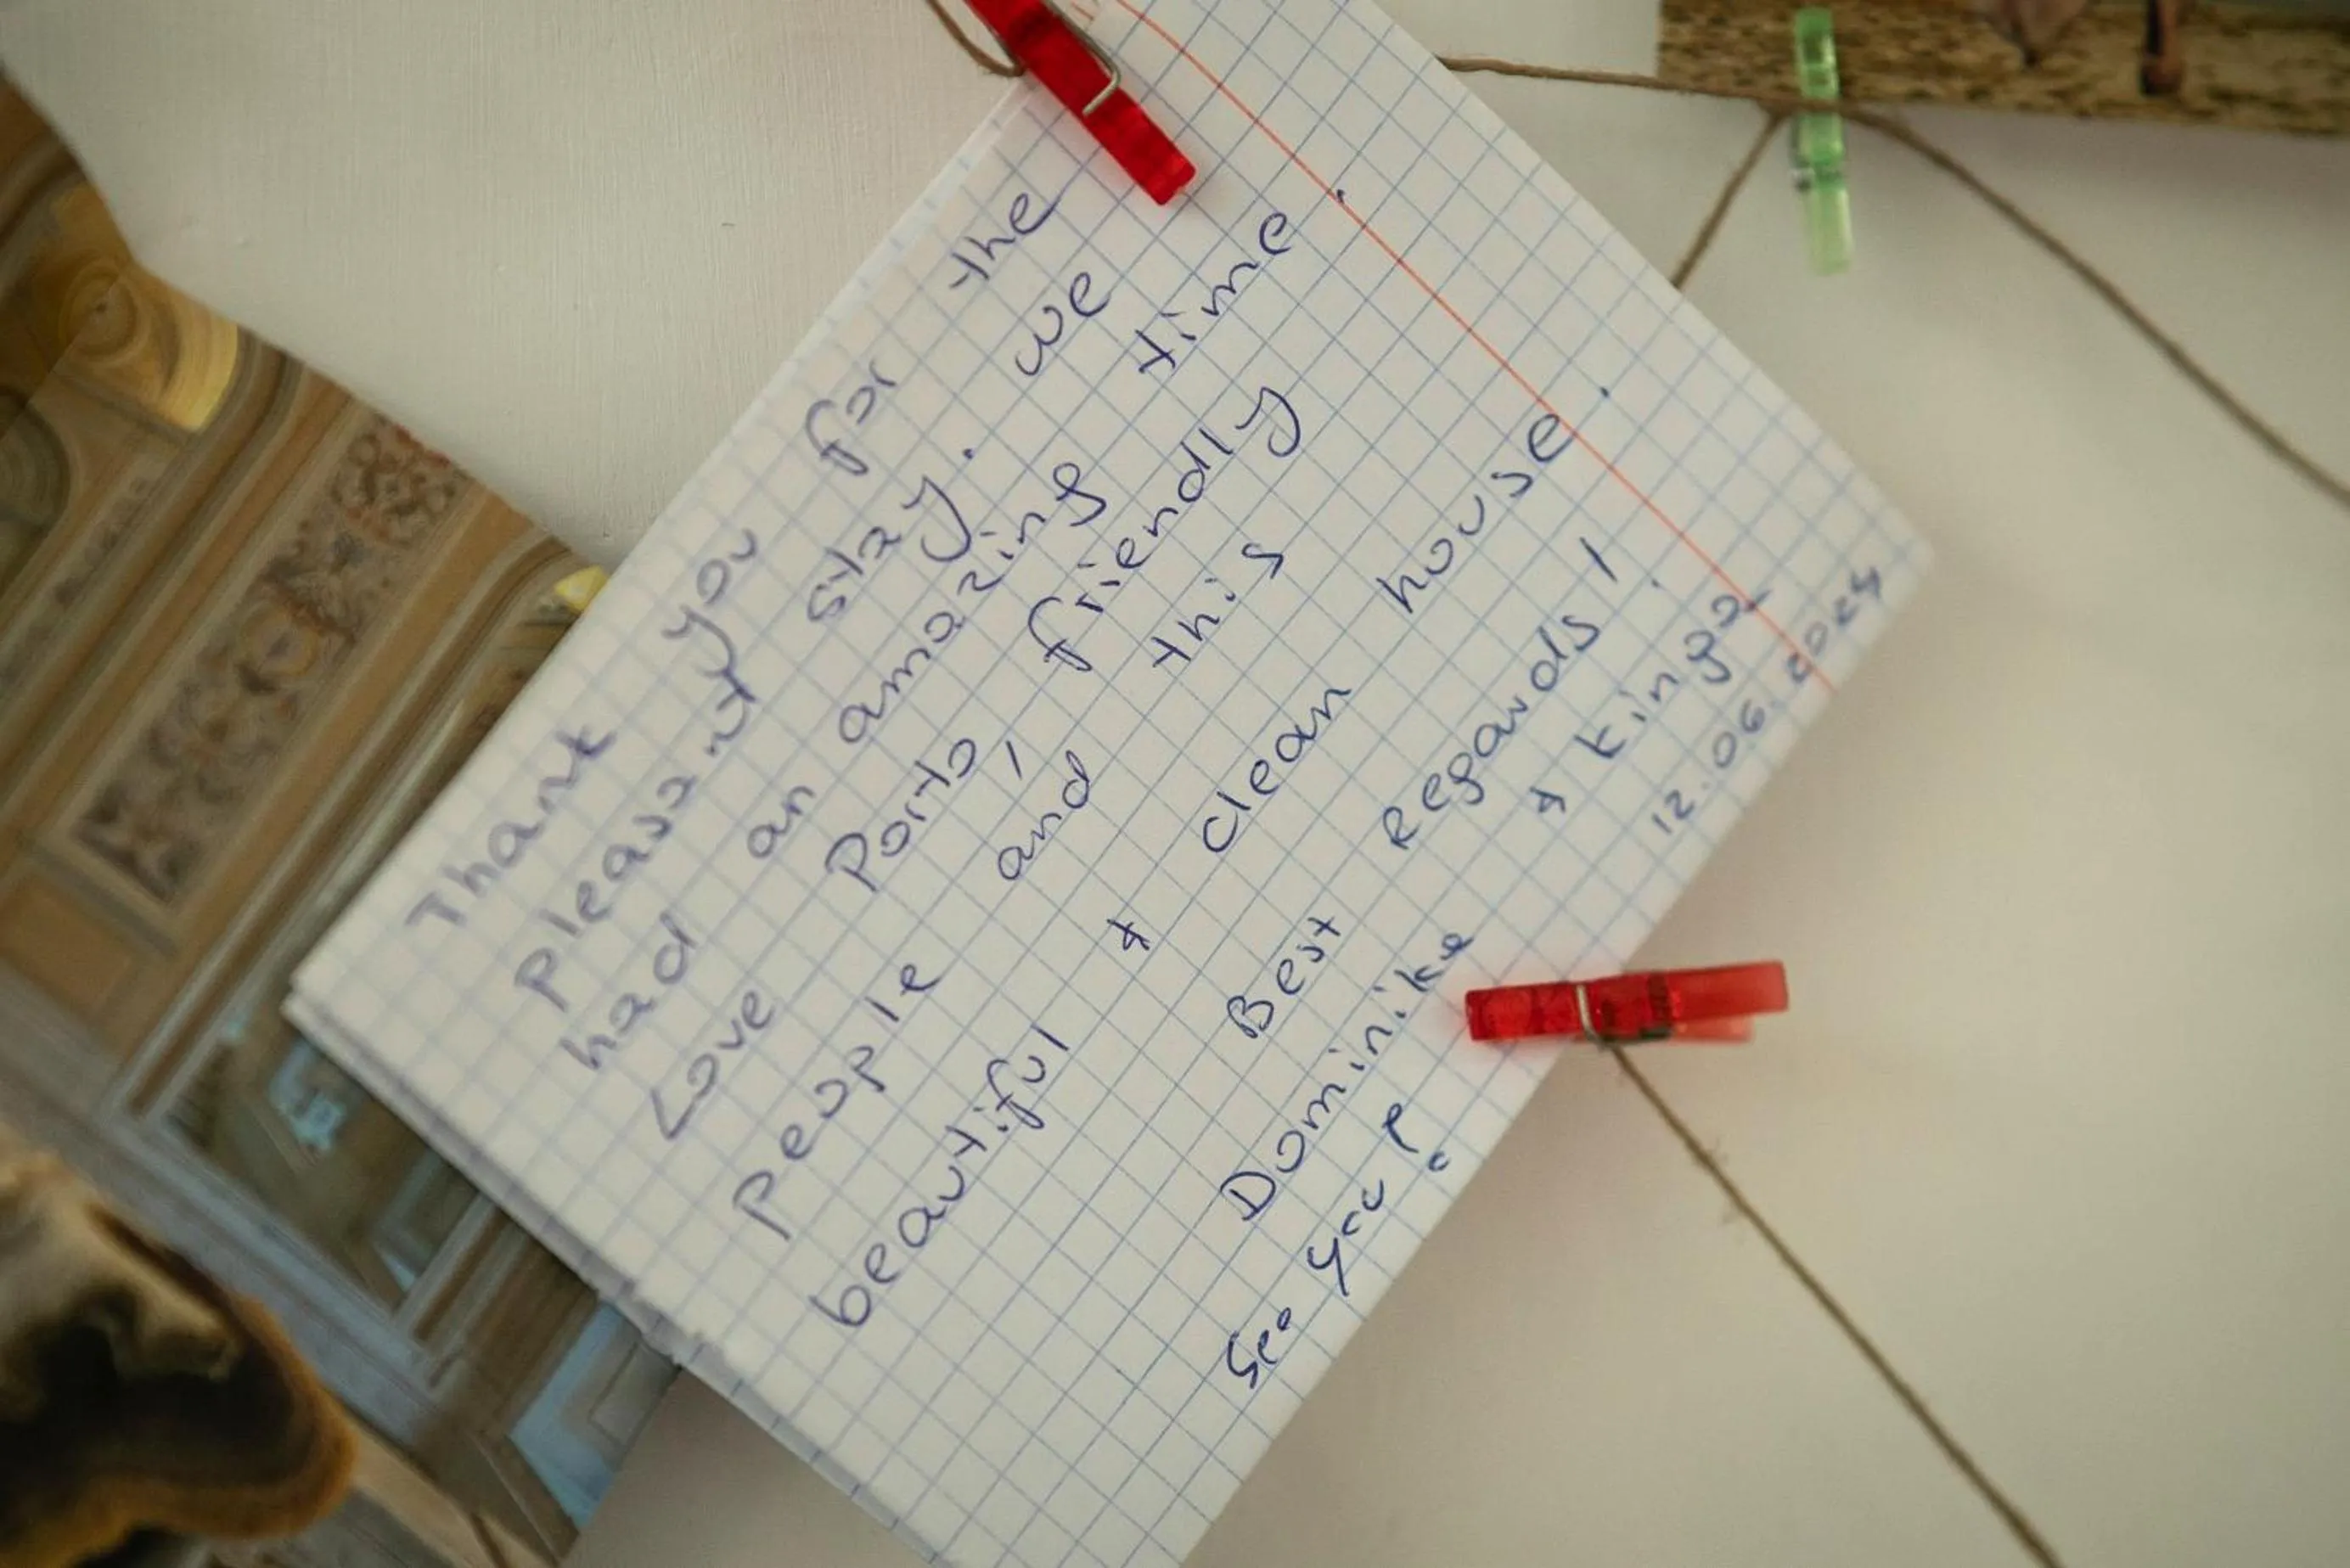 Thank you for the
pleasant stay. We
had an amazing time.
Love Porto, friendly
people and this
beautiful + clean house.
Best Regards!
Dominika + Kinga
12.06.2024
See you!